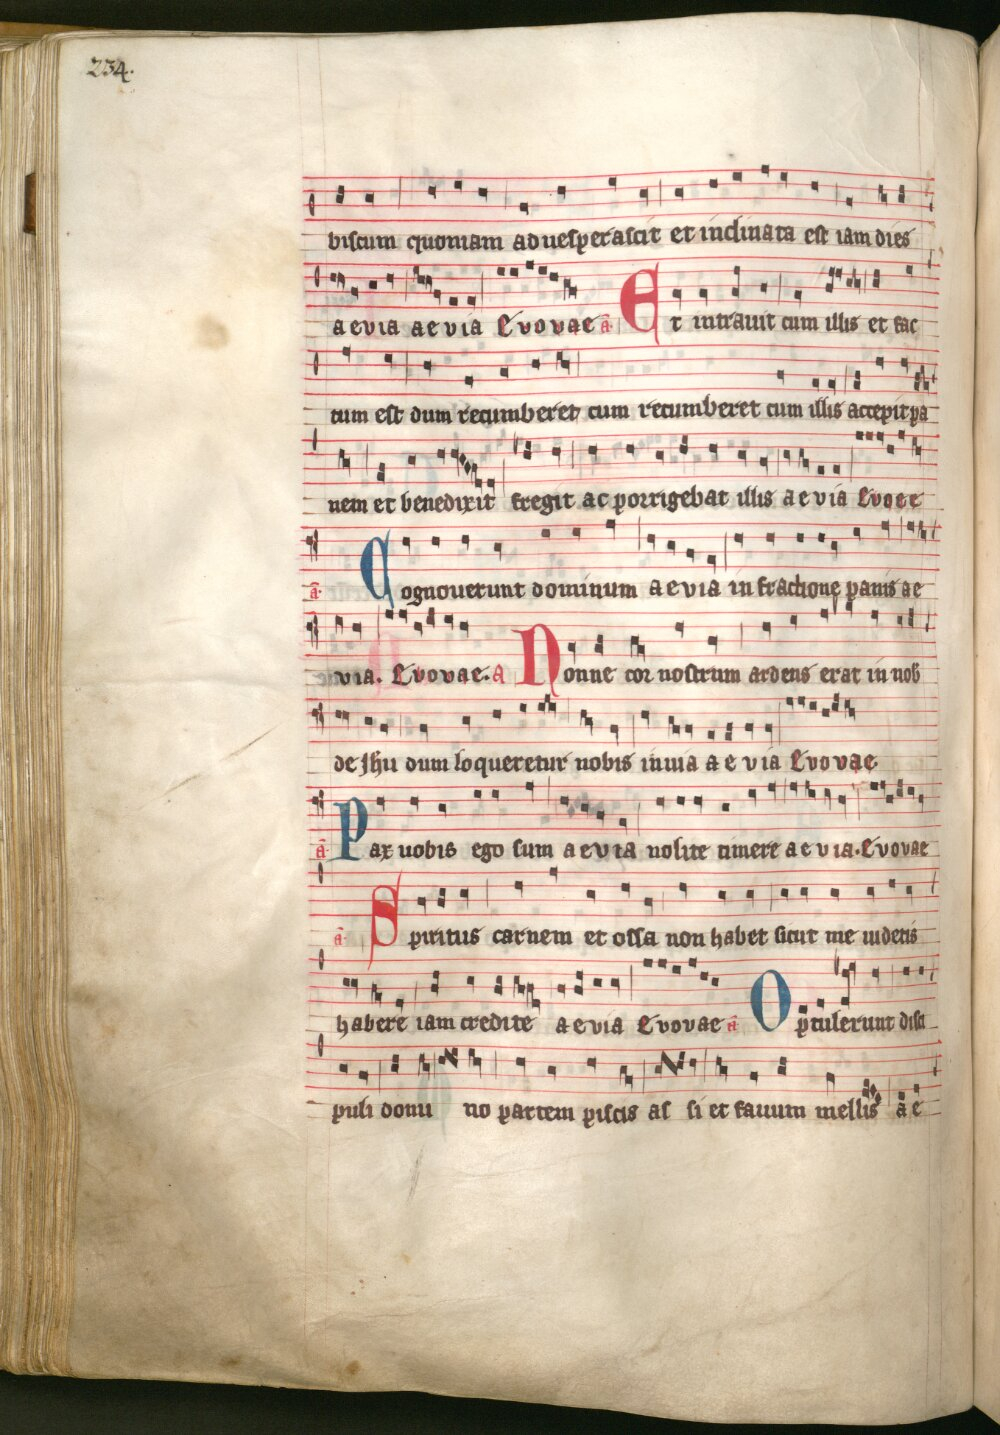 234.
biscum quoniam aduesperascit et inclinata est iam dies
aevia aevia Evovae a Et intrauit cum illis et fac
tum est dum recumberet cum recumberet cum illis accepit pa
nem et benedixit fregit ac porrigebat illis aevia Evoee
a Cognouerunt dominum aevia in fractione panis ae
via. Evovae. a Nonne cor nostrum ardens erat in nob
de Jhu dum loqueretur nobis inuia aevia Evovae
a Pax uobis ego sum aevia nolite timere aevia. Evovae
a Spiritus carnem et ossa non habet sicut me uidetis
habere iam credite aevia Evovae a Optulerunt disci
puli domi no partem piscis as si et fauum mellis a e